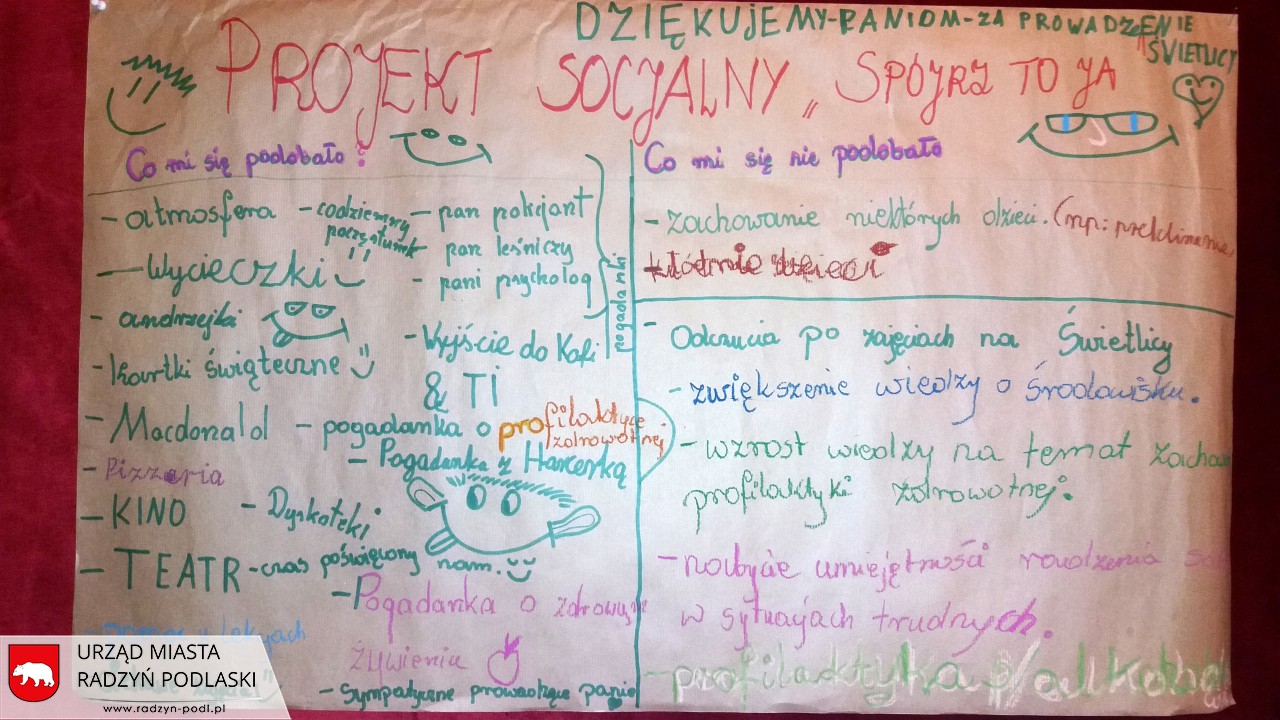 DZIĘKUJEMY-PANIOM-ZA PROWADZENIE
ŚWIETLICY
PROJEKT SOCJALNY „ SPÓJRZ TO JA
Co mi się podobało :
- atmosfera
- codzienny
poczęstunek
- pan policjant
- pan leśniczy
- pani psycholog
pogadanki
- Wycieczki
- andrzejki
- Wyjście do Kafi
& TI
- kartki świąteczne
- Macdonald
- pogadanka o profilaktyce
zdrowotnej
- Pogadanka z Harcerką
- Pizzeria
- KINO
- Dyskoteki
- TEATR
- czas poświęcony nam.
- Pogadanka o
żywienia
- Sympatyczne prowadzące panie
Co mi się nie podobało
- zachowanie niektórych dzieci. (np:
- Odczucia po zajęciach na Świetlicy
- zwiększenie wiedzy o środowisku.
- wzrost wiedzy na temat
profilaktyki zdrowotnej.
- nabycie umiejętności radzenia
w sytuacjach trudnych.
- profilaktyka
URZĄD MIASTA
RADZYŃ PODLASKI
www.radzyn-podl.pl